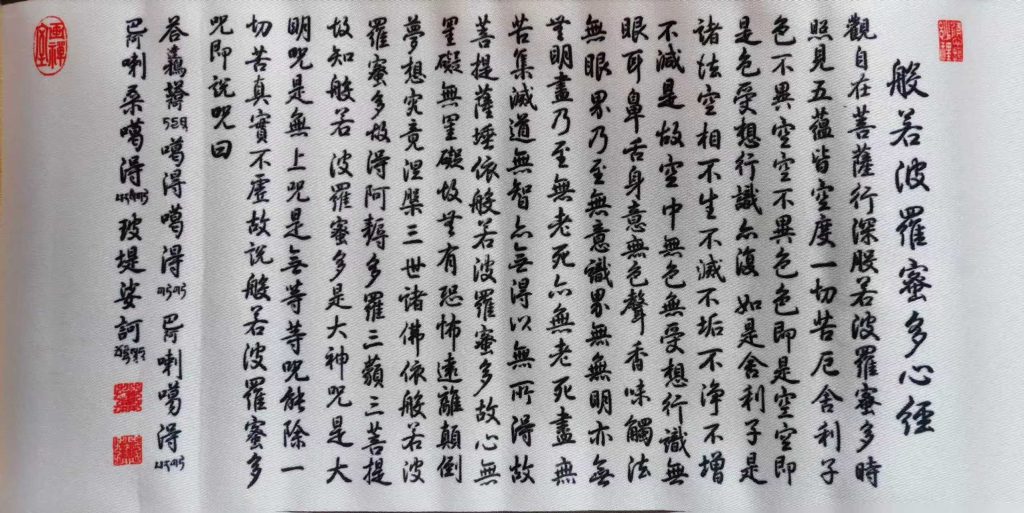 般若波羅蜜多心經
觀自在菩薩行深般若波羅蜜多時
照見五蘊皆空度一切苦厄舍利子
色不異空空不異色色即是空空即
是色受想行識亦復如是舍利子是
諸法空相不生不滅不垢不淨不增
不減是故空中無色無受想行識無
眼耳鼻舌身意無色聲香味觸法
無眼界乃至無意識界無無明亦無
無明盡乃至無老死亦無老死盡無
苦集滅道無智亦無得以無所得故
菩提薩埵依般若波羅蜜多故心無
罣礙無罣礙故無有恐怖遠離顛倒
夢想究竟涅槃三世諸佛依般若波
羅蜜多故得阿耨多羅三藐三菩提
故知般若波羅蜜多是大神咒是大
明咒是無上咒是無等等咒能除一
切苦真實不虛故說般若波羅蜜多
咒即說咒曰
噶得噶得喇噶得
喇桑噶得玻堤娑訶